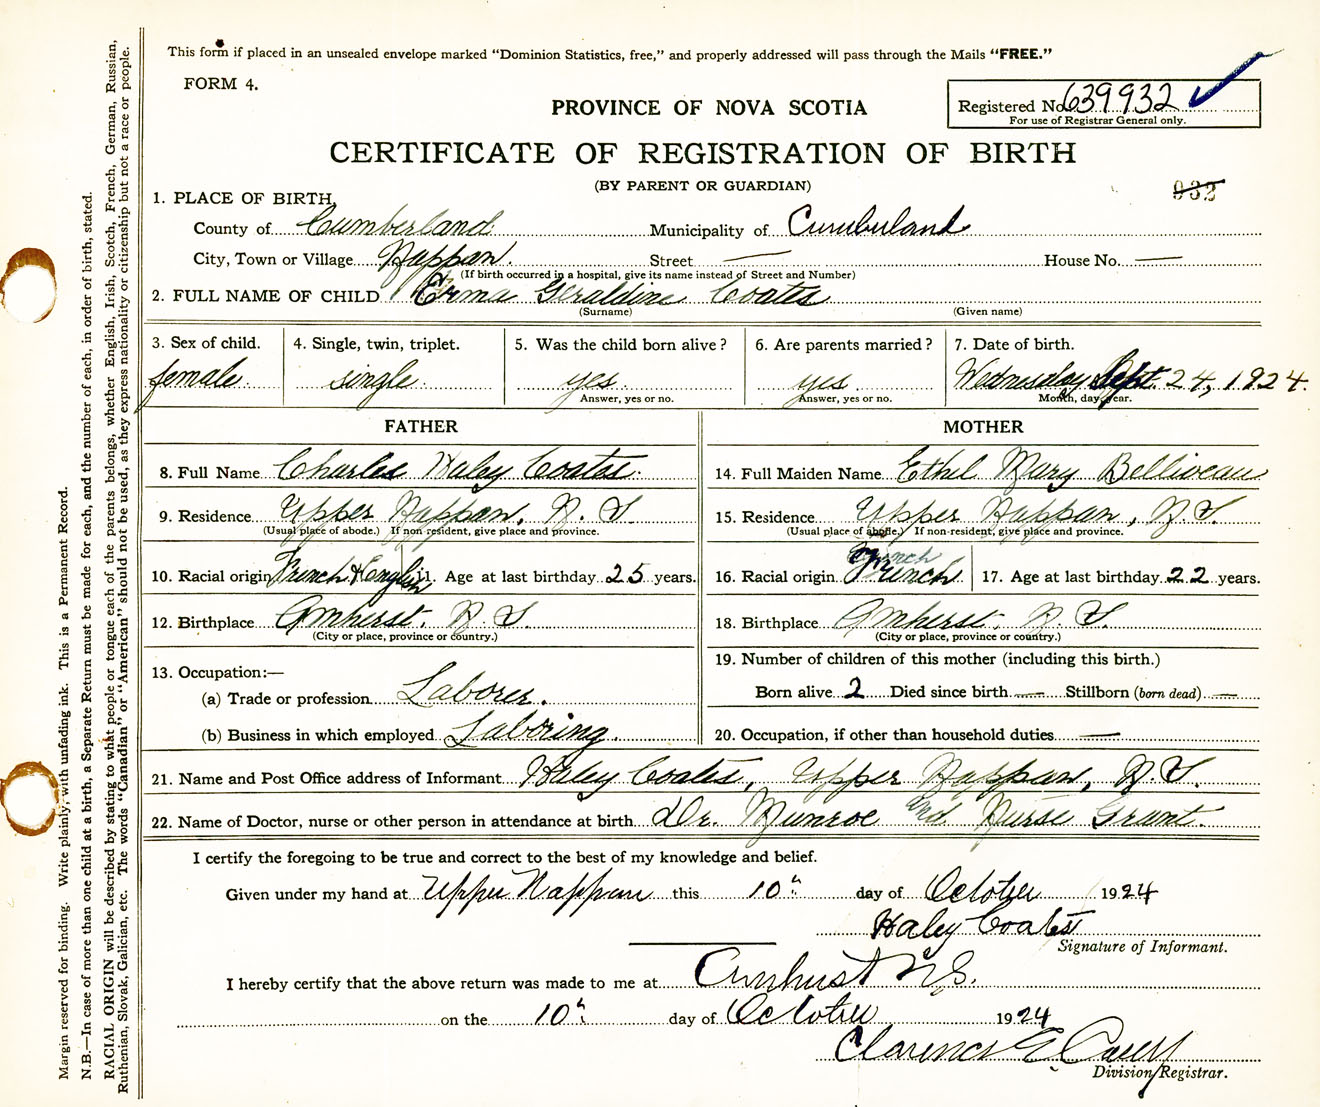 This form if placed in an unsealed envelope marked "Dominion Statistics, free," and properly addressed will pass through the Mails "FREE."
FORM 4.
PROVINCE OF NOVA SCOTIA
Registered No. 639932
For use of Registrar General only.
CERTIFICATE OF REGISTRATION OF BIRTH
(BY PARENT OR GUARDIAN)
932
1. PLACE OF BIRTH,
County of Cumberland Municipality of Cumberland
City, Town or Village Nappan. Street — House No. —
(If birth occurred in a hospital, give its name instead of Street and Number)
2. FULL NAME OF CHILD Erma Geraldine Coates
(Surname) (Given name)
3. Sex of child. 4. Single, twin, triplet. 5. Was the child born alive? 6. Are parents married? 7. Date of birth.
female single. yes. yes Wednesday Sept. 24, 1924.
Answer, yes or no. Answer, yes or no. Month, day, year.
FATHER MOTHER
8. Full Name Charles Haley Coates. 14. Full Maiden Name Ethel Mary Belliveau
9. Residence Upper Nappan, N.S. 15. Residence Upper Nappan, N.S.
(Usual place of abode.) If non-resident, give place and province. (Usual place of abode.) If non-resident, give place and province.
10. Racial origin French & English 11. Age at last birthday 25 years. 16. Racial origin French French 17. Age at last birthday 22 years.
12. Birthplace Amherst, N.S. 18. Birthplace Amherst, N.S.
(City or place, province or country.) (City or place, province or country.)
13. Occupation:— 19. Number of children of this mother (including this birth.)
(a) Trade or profession Laborer. Born alive 2 Died since birth — Stillborn (born dead) —
(b) Business in which employed Laboring. 20. Occupation, if other than household duties —
21. Name and Post Office address of Informant Haley Coates, Upper Nappan, N.S.
22. Name of Doctor, nurse or other person in attendance at birth Dr. Munroe and Nurse Grant.
I certify the foregoing to be true and correct to the best of my knowledge and belief.
Given under my hand at Upper Nappan this 10th day of October 1924
Haley Coates
Signature of Informant.
I hereby certify that the above return was made to me at Amherst N.S.
on the 10th day of October 1924
Clarence E. Casey
Division Registrar.
Margin reserved for binding. Write plainly, with unfading ink. This is a Permanent Record.
N.B.—In case of more than one child at a birth, a Separate Return must be made for each, and the number of each, in order of birth, stated.
RACIAL ORIGIN will be described by stating to what people or tongue each of the parents belongs, whether English, Irish, Scotch, French, German, Russian,
Ruthenian, Slovak, Galician, etc. The words "Canadian" or "American" should not be used, as they express nationality or citizenship but not a race or people.